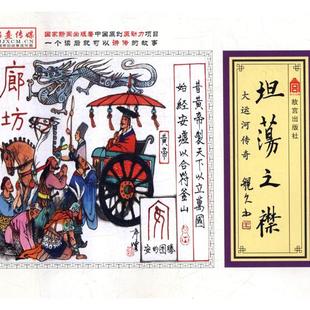 国家新闻出版署中国原创原动力项目
一个读后就可以讲传的故事
JXCM.CN
廊坊
昔黄帝製天下以立萬國
始经安墟以合符釜山
黄帝
安
安的图腾
故宫出版社
坦蕩之襟
大运河传奇